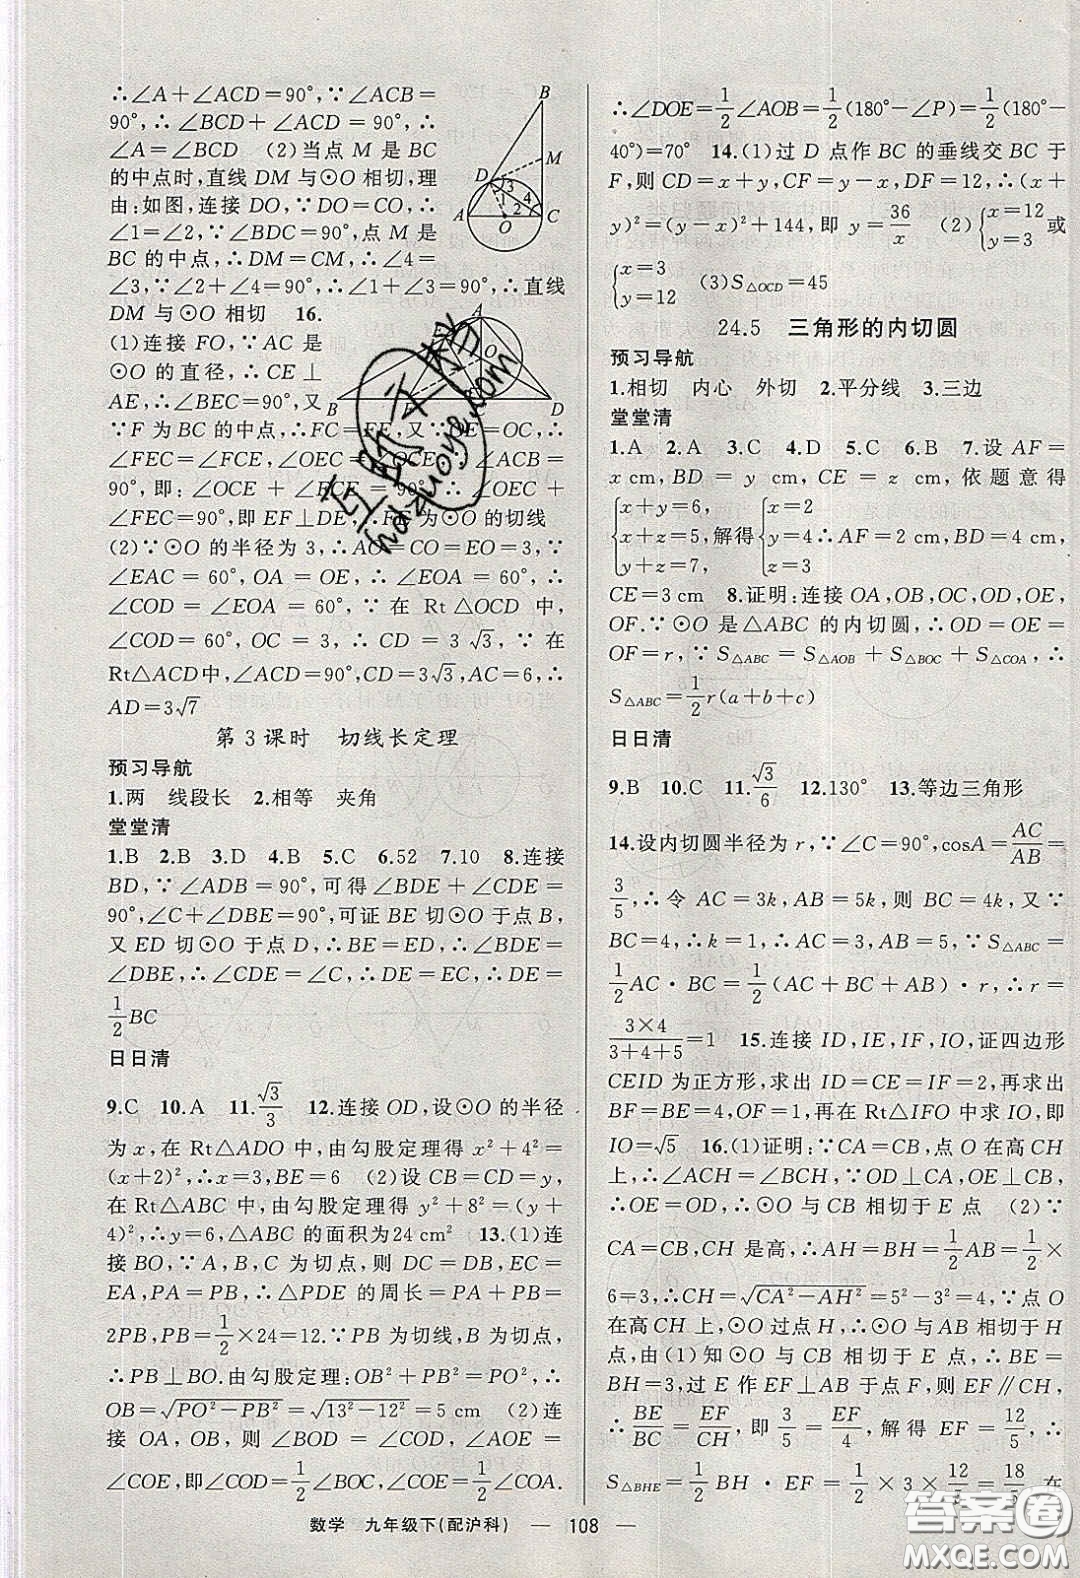 ∴∠A+∠ACD=90°,∵∠ACB=
90°,∴∠BCD+∠ACD=90°,∴
∠A=∠BCD (2)当点 M 是 BC
的中点时,直线 DM 与⊙O 相切,理
由:如图,连接 DO,∵DO=CO,∴
∠1=∠2,∵∠BDC=90°,点 M 是
BC 的中点,∴DM=CM,∴∠4=
∠3,∵∠2+∠4=90°,∴∠1+∠3=90°,∴直线
DM 与⊙O 相切 16.
(1)连接 FO,∵AC 是
⊙O 的直径,∴CE⊥
AE,∴∠BEC=90°,又
∵F 为 BC 的中点,∴FC=FE,又∵OE=OC,∴
∠FEC=∠FCE,∠OEC=∠OCE,∵∠ACB=
90°,即:∠OCE+∠FCE=90°,∴∠OEC+
∠FEC=90°,即 EF⊥OE,∴FE 为⊙O 的切线
(2)∵⊙O 的半径为 3,∴AO=CO=EO=3,∵
∠EAC=60°,OA=OE,∴∠EOA=60°,∴
∠COD=∠EOA=60°,∵在 Rt△OCD 中,
∠COD=60°,OC=3,∴CD=3√3,∵在
Rt△ACD中,∠ACD=90°,CD=3√3,AC=6,∴
AD=3√7
第 3 课时 切线长定理
预习导航
1.两 线段长 2.相等 夹角
堂堂清
1.B 2.B 3.D 4.B 5.C 6.52 7.10 8.连接
BD,∵∠ADB=90°,可得∠BDE+∠CDE=
90°,∠C+∠DBE=90°,可证 BE 切⊙O 于点 B,
又 ED 切⊙O 于点 D,∴BE=ED,∴∠BDE=
∠DBE,∴∠CDE=∠C,∴DE=EC,∴DE=
1/2BC
日日清
9.C 10.A 11.√3/3 12.连接 OD,设⊙O 的半径
为 x,在 Rt△ADO 中,由勾股定理得 x²+4²=
(x+2)²,∴x=3,BE=6 (2)设 CB=CD=y,
在 Rt△ABC 中,由勾股定理得 y²+8²=(y+
4)²,∴y=6,∴△ABC 的面积为24 cm² 13.(1)连
接 BO,∵B,A,E 为切点,则 DC=DB,EC=
EA,PA=PB,∴△PDE 的周长=PA+PB=
2PB,PB=1/2×24=12.∵PB 为切线,B 为切点,
∴PB⊥BO.由勾股定理:OB²+PB²=PO²,∴
OB=√PO²-PB²=√13²-12²=5 cm (2)连
接 OA,OB,则∠BOD=∠COD,∠AOE=
∠COE,即∠COD=1/2∠BOC,∠COE=1/2∠COA.
∴∠DOE=1/2∠AOB=1/2(180°-∠P)=1/2(180°-
40°)=70° 14.(1)过 D 点作 BC 的垂线交 BC 于
F,则 CD=x+y,CF=y-x,DF=12,∴(x+
y)²=(y-x)²+144,即 y=36/x (2){x=12 y=3 或
{x=3 y=12 (3)S△OCD=45
24.5 三角形的内切圆
预习导航
1.相切 内心 外切 2.平分线 3.三边
堂堂清
1.A 2.A 3.C 4.D 5.C 6.B 7.设 AF=
x cm,BD=y cm,CE=z cm,依题意得
{x+y=6, x+z=5, y+z=7, 解得{x=2 y=4 z=3 ∴AF=2 cm,BD=4 cm,
CE=3 cm 8.证明:连接 OA,OB,OC,OD,OE,
OF.∵⊙O 是△ABC 的内切圆,∴OD=OE=
OF=r,∵S△ABC=S△AOB+S△BOC+S△COA,∴
S△ABC=1/2r(a+b+c)
日日清
9.B 10.C 11.√3/6 12.130° 13.等边三角形
14.设内切圆半径为 r,∵∠C=90°,cosA=AC/AB=
3/5,∴令 AC=3k,AB=5k,则 BC=4k,又∵
BC=4,∴k=1,∴AC=3,AB=5,∵S△ABC=
1/2AC·BC=1/2(AC+BC+AB)·r,∴r=
3×4/3+4+5=1 15.连接 ID,IE,IF,IO,证四边形
CEID 为正方形,求出 ID=CE=IF=2,再求出
BF=BE=4,OF=1,再在 Rt△IFO 中求 IO,即
IO=√5 16.(1)证明:∵CA=CB,点 O 在高 CH
上,∴∠ACH=∠BCH,∵OD⊥CA,OE⊥CB,
∴OE=OD,∴⊙O 与 CB 相切于 E 点 (2)∵
CA=CB,CH 是高,∴AH=BH=1/2AB=1/2×
6=3,∴CH=√CA²-AH²=5²-3²=4,∵点 O
在高 CH 上,⊙O 过点 H,∴⊙O 与 AB 相切于 H
点,由(1)知⊙O 与 CB 相切于 E 点,∴BE=
BH=3,过 E 作 EF⊥AB 于点 F,则 EF∥CH,
∴BE/BC=EF/CH,即 3/5=EF/4,解得 EF=12/5,∴
S△BHE=1/2BH·EF=1/2×3×12/5=18/5 在
数学 九年级下(配沪科) — 108 —
B
M
D
3
1
4
2
A
O
C
A
O
E
B
F
C
D
互动平台
hdzuoye.com
答案圈
MXQE.COM